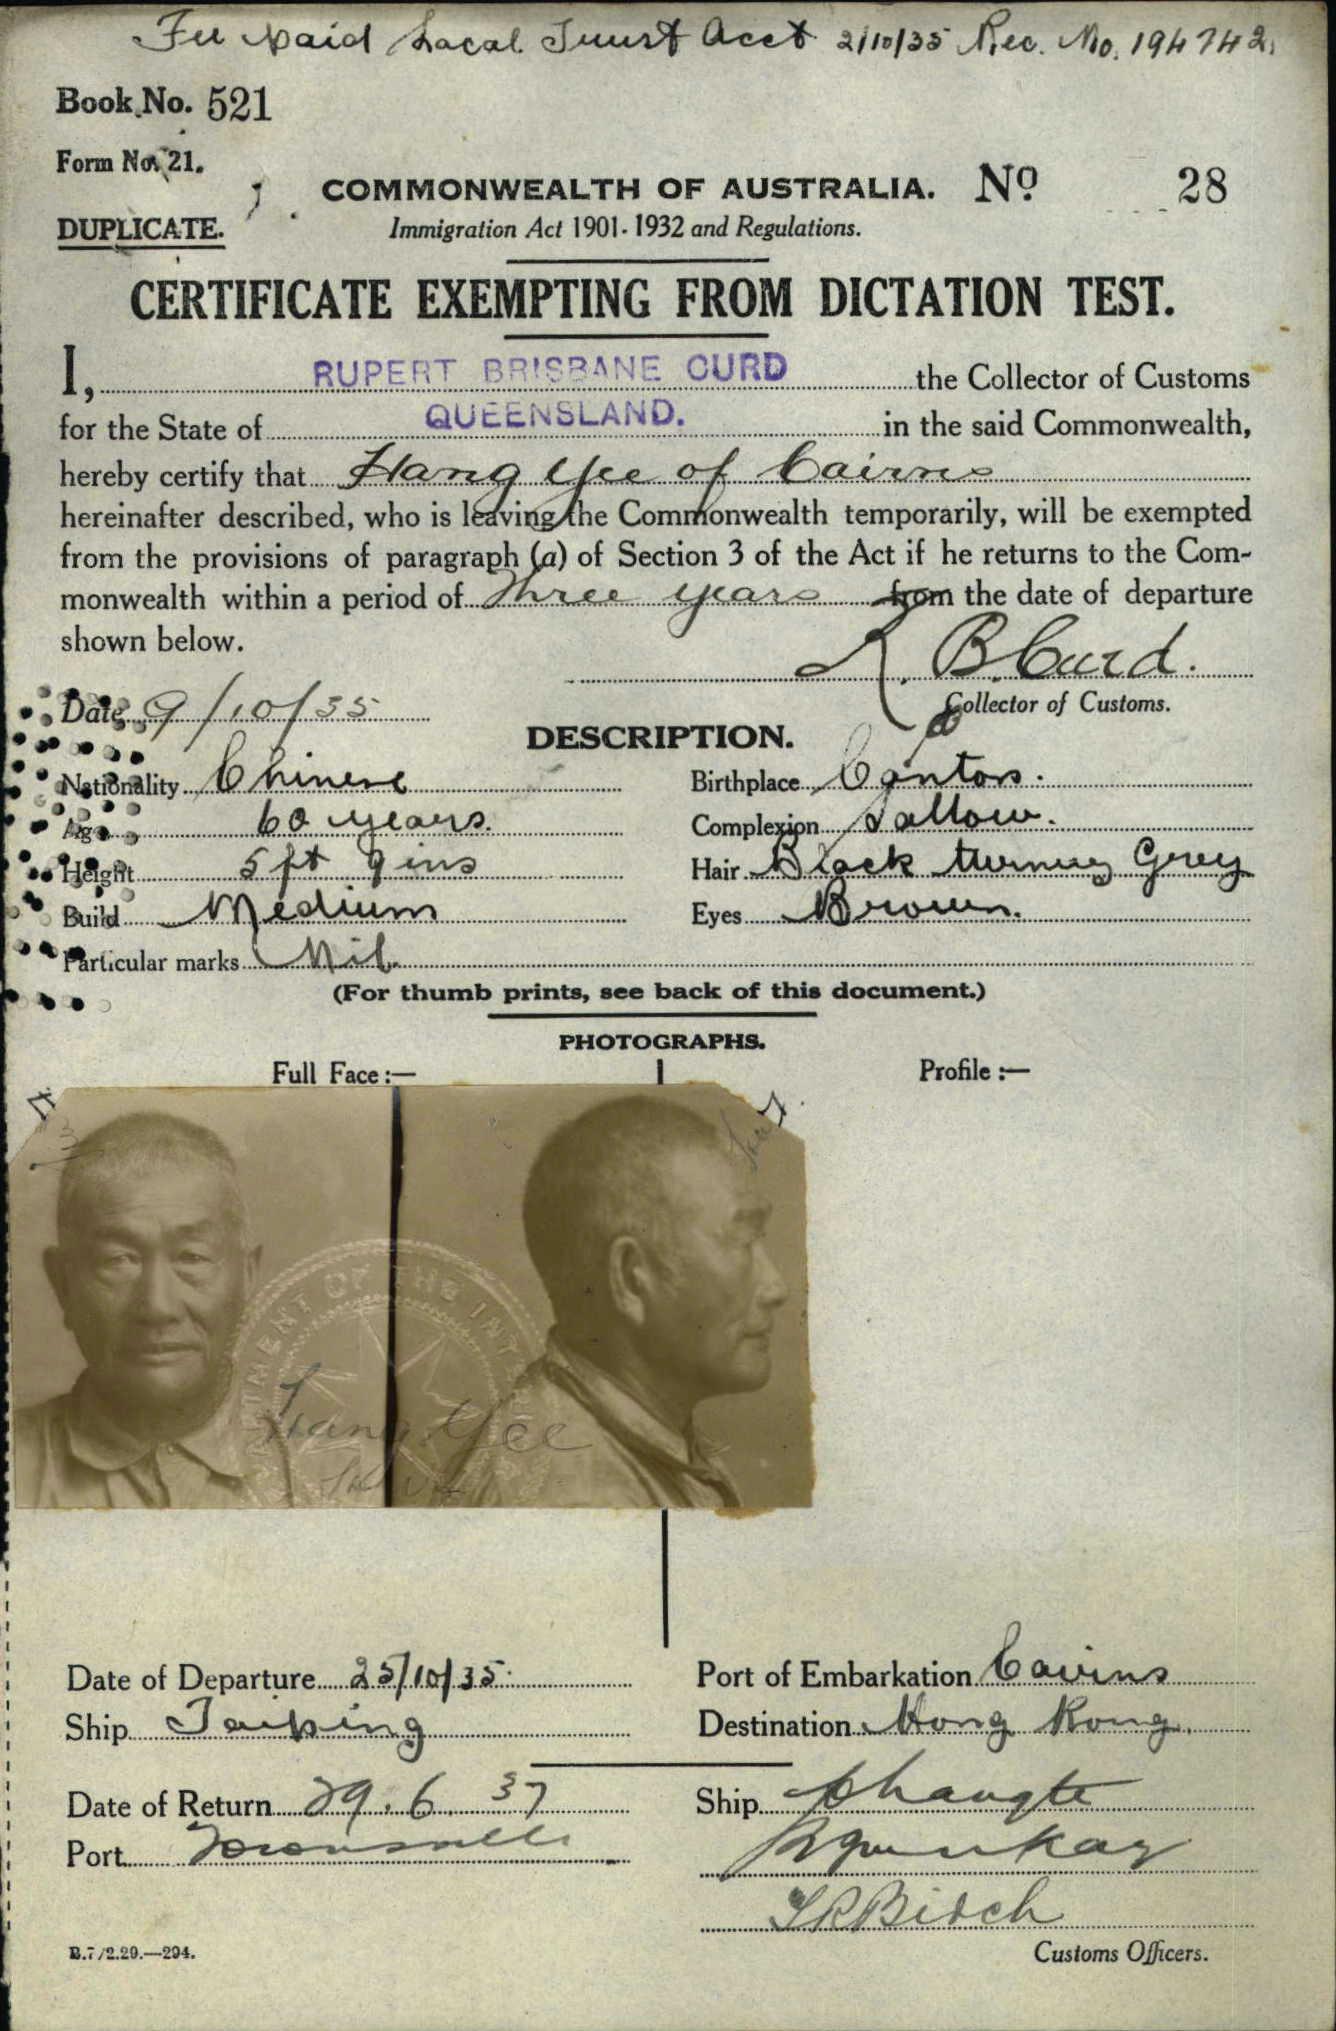 Fee paid Local Trust Acct 2/10/35 Rec. No. 194742.
Book No. 521
Form No. 21.
COMMONWEALTH OF AUSTRALIA. No 28
DUPLICATE.
Immigration Act 1901-1932 and Regulations.
CERTIFICATE EXEMPTING FROM DICTATION TEST.
I, RUPERT BRISBANE CURD the Collector of Customs
for the State of QUEENSLAND. in the said Commonwealth,
hereby certify that Hang Yee of Cairns
hereinafter described, who is leaving the Commonwealth temporarily, will be exempted
from the provisions of paragraph (a) of Section 3 of the Act if he returns to the Com-
monwealth within a period of Three years from the date of departure
shown below.
R. B. Curd.
Collector of Customs.
Date 9/10/35
DESCRIPTION.
Nationality Chinese Birthplace Canton.
Age 60 years. Complexion Sallow.
Height 5 ft 9 ins Hair Black turning Grey
Build Medium Eyes Brown.
Particular marks Nil.
(For thumb prints, see back of this document.)
PHOTOGRAPHS.
Full Face :— Profile :—
MENT OF THE INT
Hang Yee
Date of Departure 25/10/35. Port of Embarkation Cairns
Ship Taiping Destination Hong Kong.
Date of Return 29. 6. 37 Ship Changte
Port Townsville
Customs Officers.
B.7/2.29.—294.